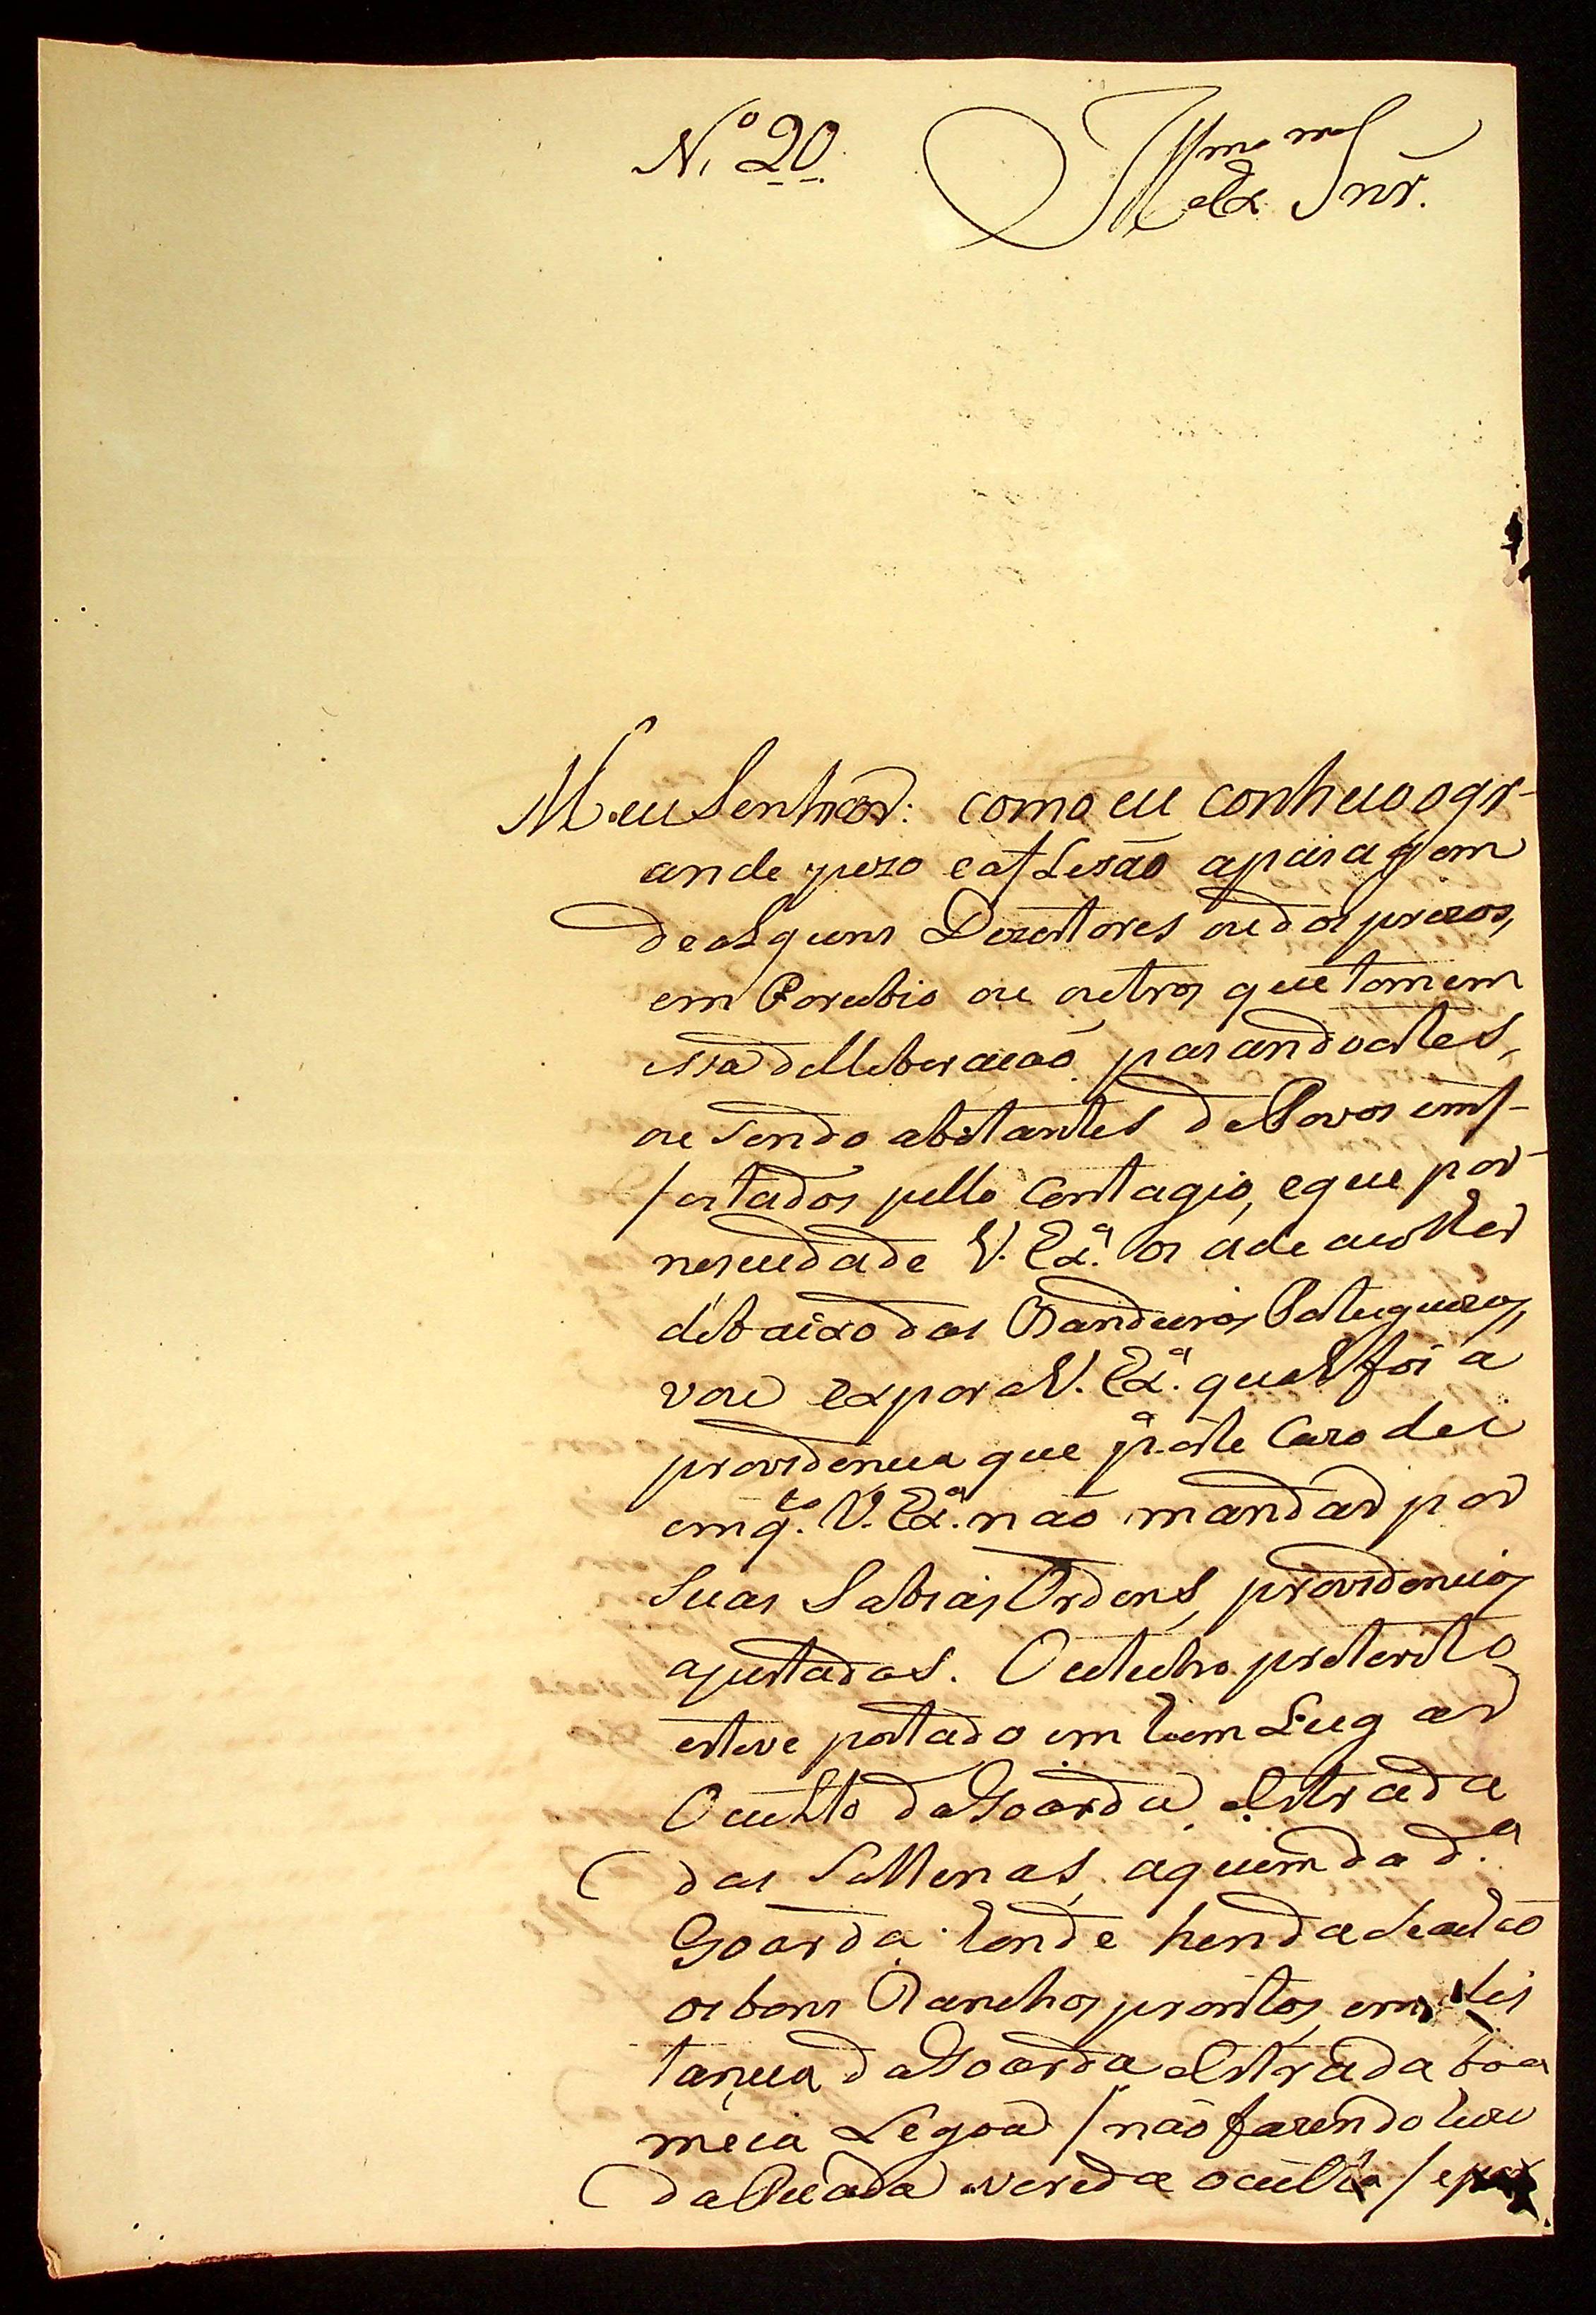 N.º 20.
Ill.mo e Ex.mo Snr.
Meu Senhor: como eu conheco o gr-
ande pezo e aflisão a paragem
de alguns Dezertores ou dos prezos,
em Porubio ou outros que tomem
essa delliberacaó, parando estes,
ou sendo abitantes de Povos emf-
festados pello Contagio, e que por
nescecidade V. Ex.ª os á de acolher
debaixo das Banderas Patuguezas,
vou expor a V. Ex.ª qual foi a
providencia que p.ª este Cazo dei
emq.to V. Ex.ª não mandar por
Suas Sabias Ordens, providencias
ajustadas. Outubro preterito
esteve postado em hum Lugar
Oculto da Goarda, e Estrada
das Sallenas, aquem da d.ª
Goarda. honde henda se achão
os bons Ranchos prontos, em dis
tancia da Goarda e Estrada boa
meia Legoa / não fazendo huzo
da Picada vereda oculta /